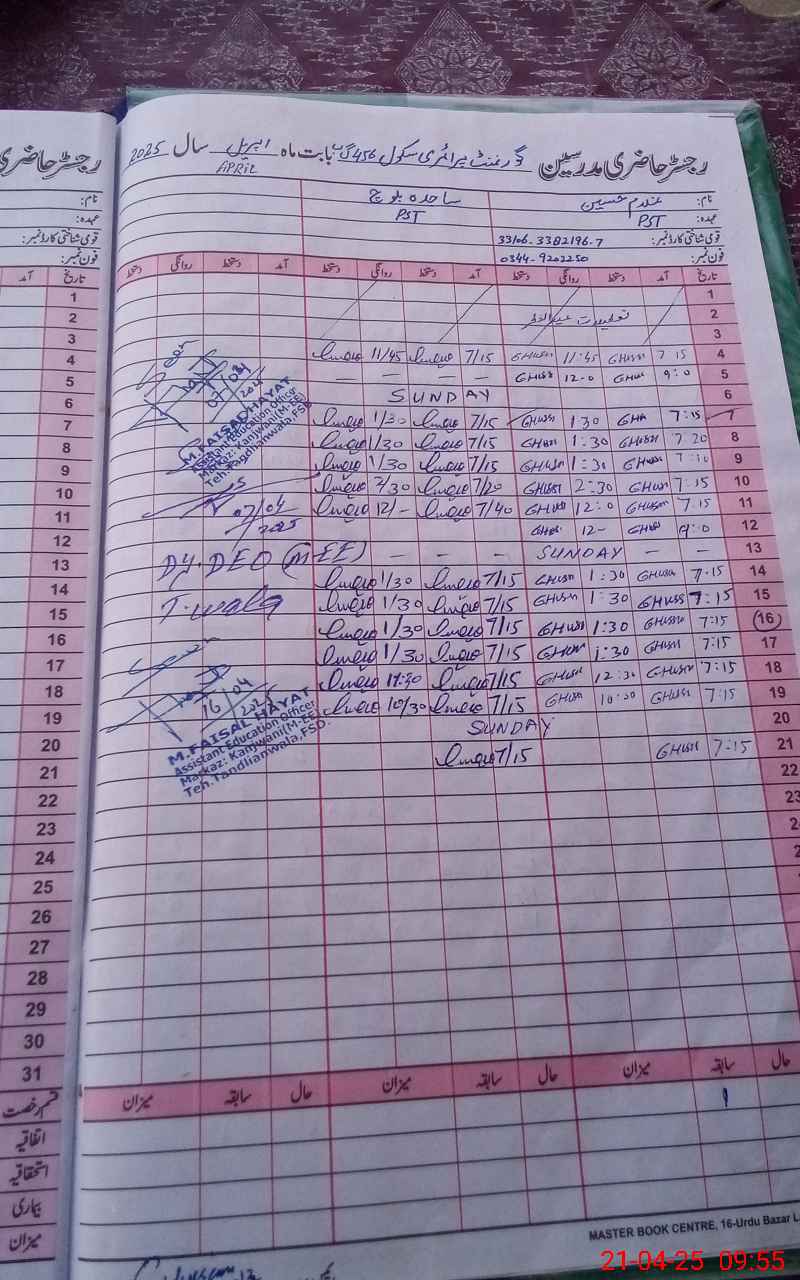 رجسٹر حاضری مدرسین گورنمنٹ پرائمری سکول 456 گ ب بابت ماہ اپریل سال 2025
APRIL
نام: غلام حسین ساجدہ بلوچ
عہدہ: PST PST
قومی شناختی کارڈ نمبر: 33106-3382196-7
فون نمبر: 0344-9202250
تاریخ آمد دستخط روانگی دستخط آمد دستخط روانگی دستخط آمد دستخط روانگی دستخط
1
2 تعطیلات عید الفطر
3
4 7 15 GHUSSN 11:45 GHUSSN 7/15 11/45
5 9:0 GHUS 12-0 GHUSS — — — —
6 SUNDAY
7 7:15 GHA 1 30 GHUSSN 7/15 1/30
8 7 20 GHUSSN 1:30 GHUSN 7/15 1/30
9 7:10 GHUSN 1:30 GHUSSN 7/15 1/30
10 7:15 GHUSSN 2:30 GHUSSN 7/20 2/30
11 7.15 GHUSM 12:0 GHUSN 7/40 12/-
12 9:0 GHUSN 12- GHUSN
13 — — SUNDAY — — —
14 7.15 GHUSSN 1:30 GHUSN 7/15 1/30
15 7:15 GHUSS 1:30 GHUSM 7/15 1/30
16 7:15 GHUSSN 1:30 GHUSSN 7/15 1/30
17 7:15 GHUSN 1:30 GHUSN 7/15 1/30
18 7:15 GHUSSN 12:30 GHUSN 7/15
19 7:15 GHUSSN 10:30 GHUSN 7/15 10/30
20 SUNDAY
21 7:15 GHUSSN 7/15
22
23
24
25
26
27
28
29
30
31
07/04
M.FAISAL HAYAT
Assistant Education Officer
Markaz: Kanjwani(M-EE)
Teh. Tandlianwala,FSD.
07/04
2025
Dy. DEO (M-EE)
T.wala
16/04
M.FAISAL HAYAT
Assistant Education Officer
Markaz: Kanjwani(M-EE)
Teh. Tandlianwala,FSD.
حال سابقہ میزان حال سابقہ میزان حال سابقہ میزان
قسم رخصت
اتفاقیہ
استحقاقیہ
بیماری
میزان
MASTER BOOK CENTRE, 16-Urdu Bazar L
21-04-25 09:55